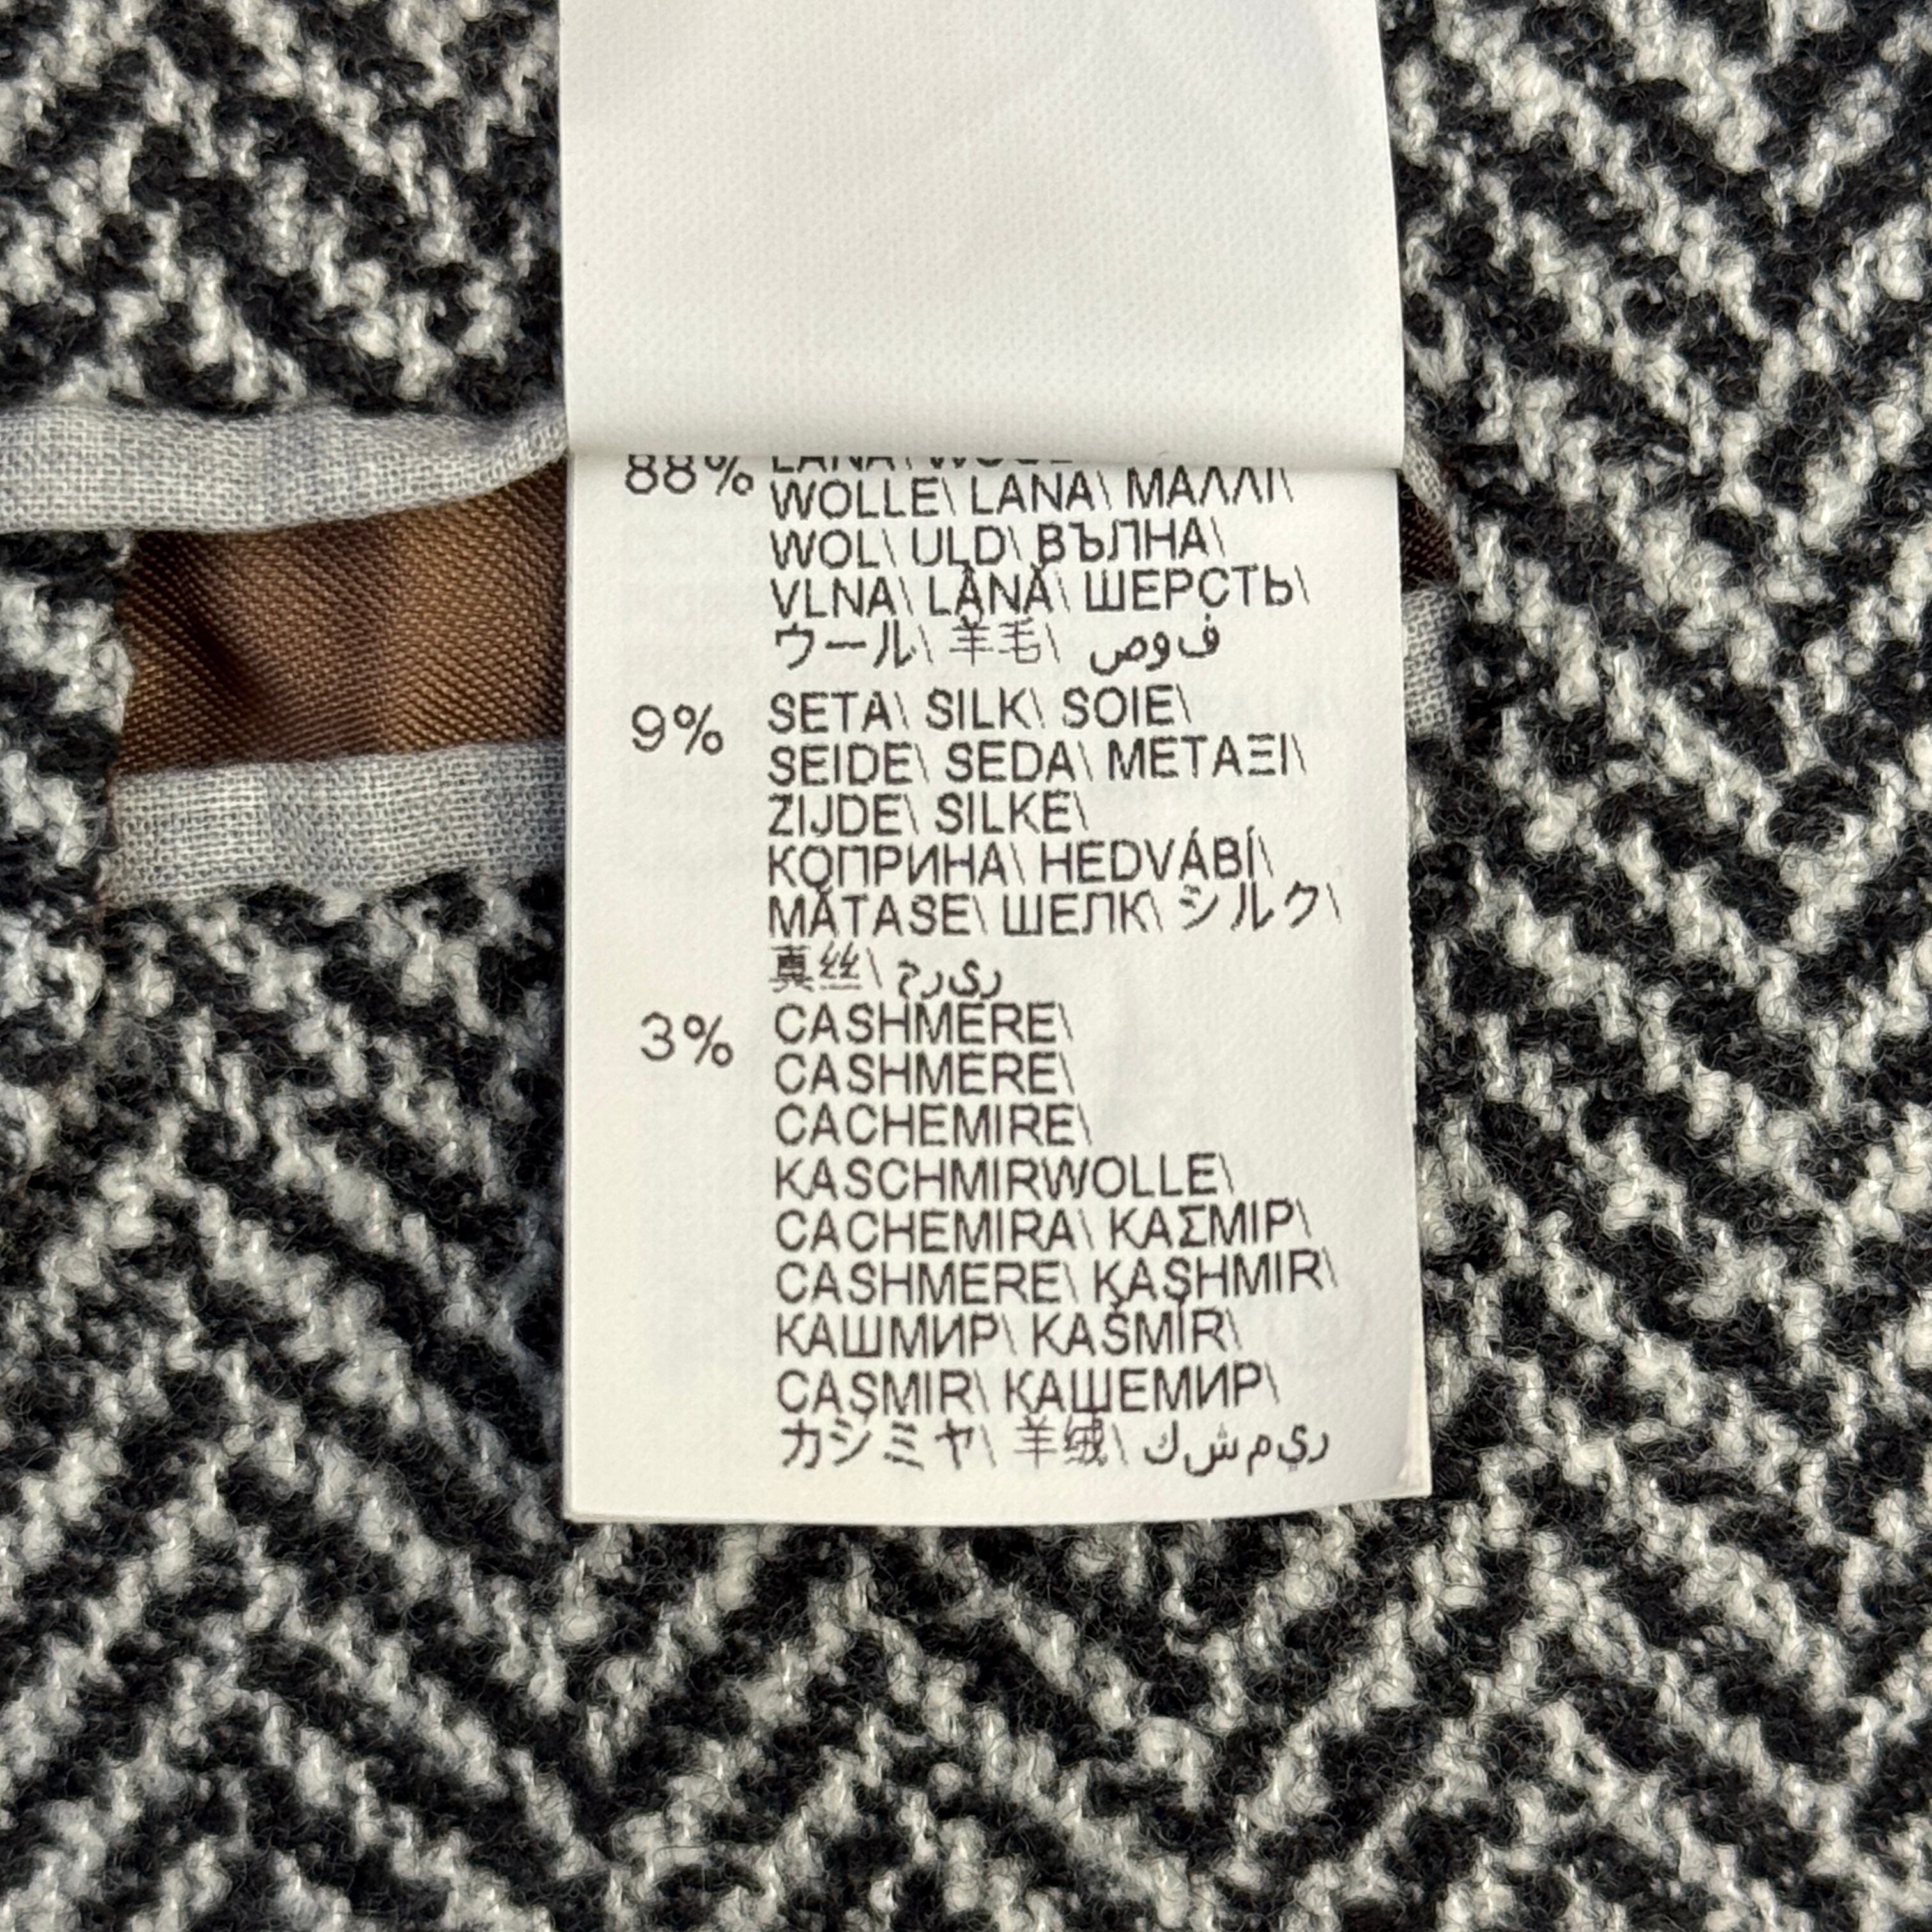 88% LANA\ WOOL
WOLLE\ LANA\ ΜΑΛΛΙ\
WOL\ ULD\ ВЪЛНА\
VLNA\ LÂNĂ\ ШЕРСТЬ\
ウール\ 羊毛\ ف و ص
9% SETA\ SILK\ SOIE\
SEIDE\ SEDA\ ΜΕΤΑΞΙ\
ZIJDE\ SILKE\
КОПРИНА\ HEDVÁBÍ\
MĂTASE\ ШЕЛК\ シルク\
真丝\ ر ي ر ح
3% CASHMERE\
CASHMERE\
CACHEMIRE\
KASCHMIRWOLLE\
CACHEMIRA\ ΚΑΣΜΙΡ\
CASHMERE\ KASHMIR\
КАШМИР\ KAŠMÍR\
CAȘMIR\ КАШЕМИР\
カシミヤ\ 羊绒\ ر ي م ش ك